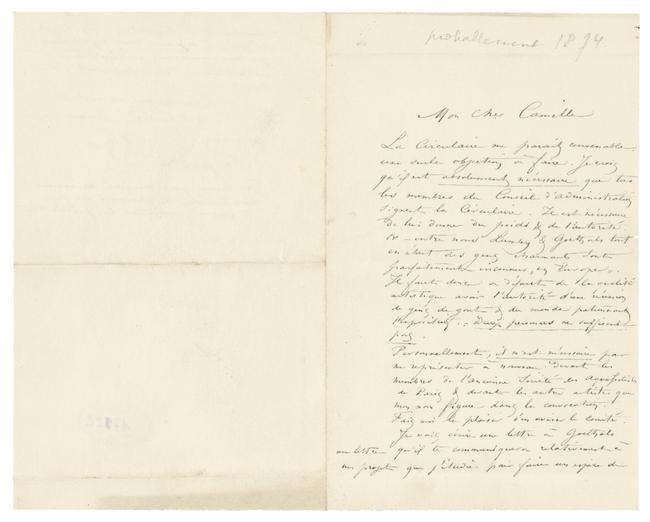 probablement 1874
Mon cher Camille
La Circulaire me parait convenable
une seule objection à faire. Je crois
qu'il est absolument nécessaire que tous
les membres du Conseil d'administration
signent la Circulaire. Il est nécessaire
de lui donner du poids & de l'autorité.
or entre nous & Goethals tout
en étant des gens charmants sont
parfaitement inconnus, en Europe.
Il faut donc à défaut de la qualité
artistique avoir l'autorité d'une réunion
de gens de gout & du monde patronnant
. Deux personnes ne suffisent
pas.
Personnellement, il n'est nécessaire pas
me représenter à nouveau devant les
membres de l'ancienne Société des Aquafortistes
de Paris & devant les autres artistes que
mon nom figure dans la convocation.
le plaisir d'en aviser le comité.
Je vais écrire une lettre à Goethals
une lettre qu'il te communiquera relativement à
un projet que j'étudie pour faire un espèce de